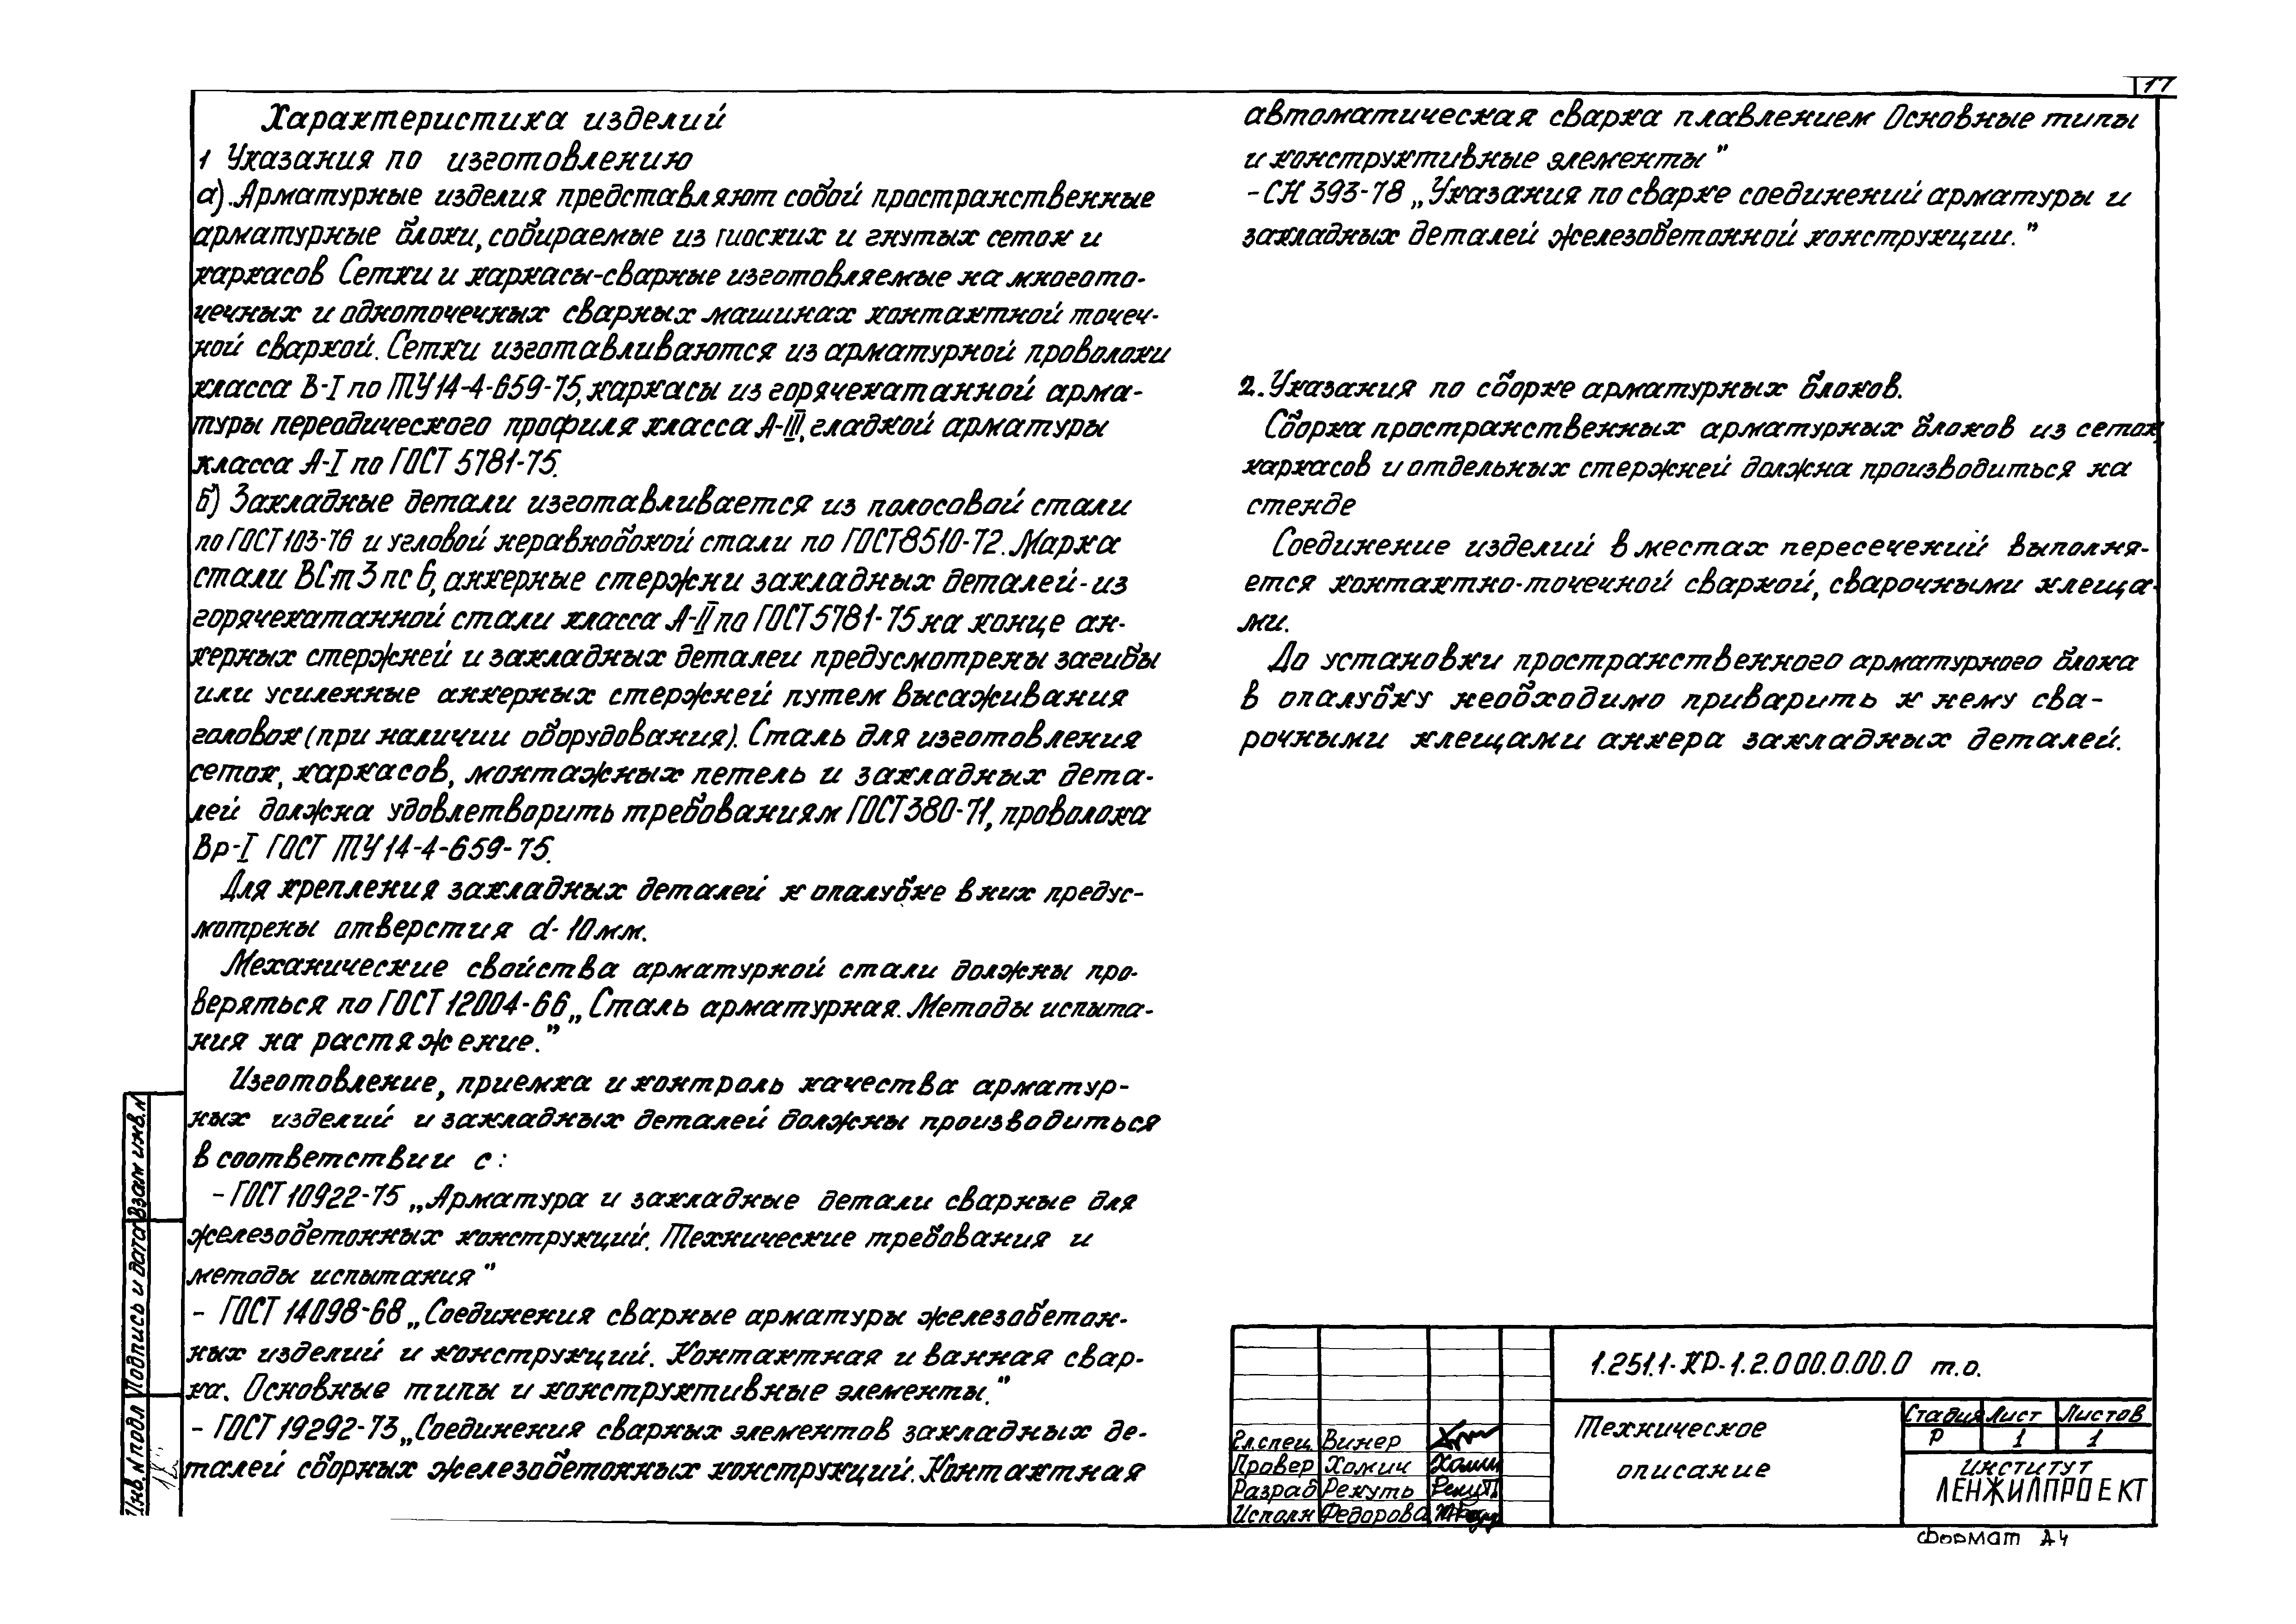 17
Характеристика изделий
1 Указания по изготовлению
а). Арматурные изделия представляют собой пространственные
арматурные блоки, собираемые из плоских и гнутых сеток и
каркасов Сетки и каркасы-сварные изготовляемые на многото-
чечных и одноточечных сварных машинах контактной точеч-
ной сваркой. Сетки изготавливаются из арматурной проволоки
класса В-I по ТУ 14-4-659-75, каркасы из горячекатанной арма-
туры переодического профиля класса А-III, гладкой арматуры
класса А-I по ГОСТ 5781-75.
б) Закладные детали изготавливается из полосовой стали
по ГОСТ 103-76 и угловой неравнобокой стали по ГОСТ 8510-72. Марка
стали ВСт 3 пс 6, анкерные стержни закладных деталей - из
горячекатанной стали класса А-II по ГОСТ 5781-75 на конце ан-
керных стержней и закладных деталеи предусмотрены загибы
или усиленные анкерных стержней путем высаживания
головок (при наличии оборудования). Сталь для изготовления
сеток, каркасов, монтажных петель и закладных дета-
лей должна удовлетворить требованиям ГОСТ 380-71, проволока
Вр-I ГОСТ ТУ 14-4-659-75.
Для крепления закладных деталей к опалубке в них предус-
мотрены отверстия d-10мм.
Механические свойства арматурной стали должны про-
веряться по ГОСТ 12004-66 „Сталь арматурная. Методы испыта-
ния на растяжение.”
Изготовление, приемка и контроль качества арматур-
ных изделий и закладных деталей должны производиться
в соответствии с:
- ГОСТ 10922-75 „Арматура и закладные детали сварные для
железобетонных конструкций. Технические требования и
методы испытания”
- ГОСТ 14098-68 „Соединения сварные арматуры железобетон-
ных изделий и конструкций. Контактная и ванная свар-
ка. Основные типы и конструктивные элементы.”
- ГОСТ 19292-73 „Соединения сварных элементов закладных де-
талей сборных железобетонных конструкций. Контактная
автоматическая сварка плавлением Основные типы
и конструктивные элементы”
- СН 393-78 „Указания по сварке соединений арматуры и
закладных деталей железобетонной конструкции.”
2. Указания по сборке арматурных блоков.
Сборка пространственных арматурных блоков из сеток
каркасов и отдельных стержней должна производиться на
стенде
Соединение изделий в местах пересечений выполня-
ется контактно-точечной сваркой, сварочными клеща-
ми.
До установки пространственного арматурного блока
в опалубку необходимо приварить к нему сва-
рочными клещами анкера закладных деталей.
Взам инв.N
Подпись и дата
Инв. N подл
1.251.1-КР-1.2.000.0.00.0 т.о.
Техническое
описание
Стадия Лист Листов
Р 1 1
Гл.спец. Винер
Провер Хомич
Разраб Рекуть
Исполн Федорова
институт
ЛЕНЖИЛПРОЕКТ
формат А4